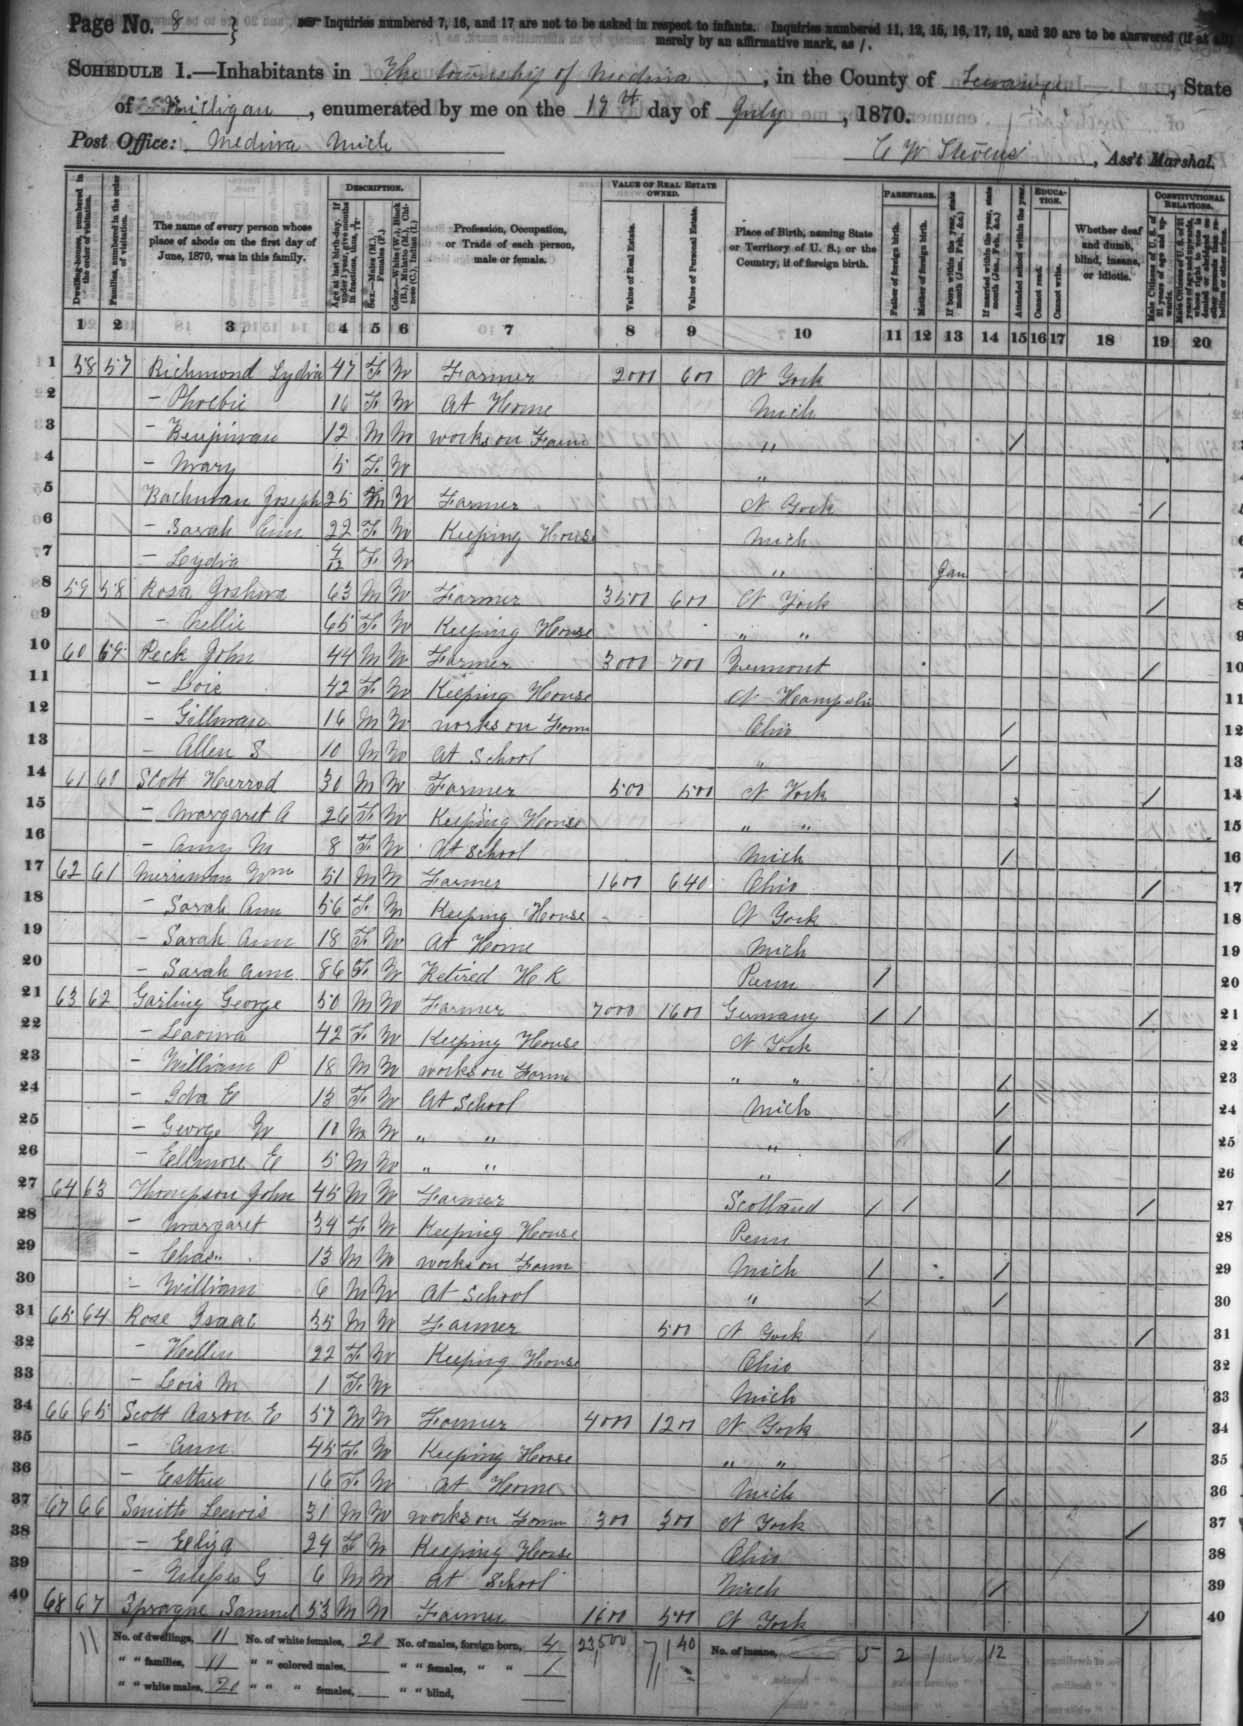 Page No. 8
Inquiries numbered 7, 16, and 17 are not to be asked in respect to infants. Inquiries numbered 11, 12, 15, 16, 17, 19, and 20 are to be answered (if at all)
merely by an affirmative mark, as /.
SCHEDULE 1.—Inhabitants in The township of Medina, in the County of Lenawee, State
of Michigan, enumerated by me on the 19th day of July, 1870.
Post Office: Medina Mich
C W Stevens, Ass't Marshal.
Dwelling-houses, numbered in the order of visitation.
Families, numbered in the order of visitation.
The name of every person whose place of abode on the first day of June, 1870, was in this family.
DESCRIPTION.
Age at last birth-day. If under 1 year, give months in fractions, thus, 3/12
Sex.—Males (M.), Females (F.)
Color.—White (W.), Black (B.), Mulatto (M.), Chinese (C.), Indian (I.)
Profession, Occupation, or Trade of each person, male or female.
VALUE OF REAL ESTATE OWNED.
Value of Real Estate.
Value of Personal Estate.
Place of Birth, naming State or Territory of U. S.; or the Country, if of foreign birth.
PARENTAGE.
Father of foreign birth.
Mother of foreign birth.
If born within the year, state month (Jan., Feb., &c.)
If married within the year, state month (Jan., Feb., &c.)
Attended school within the year.
EDUCATION.
Cannot read.
Cannot write.
Whether deaf and dumb, blind, insane, or idiotic.
CONSTITUTIONAL RELATIONS.
Male Citizens of U. S. of 21 years of age and upwards.
1 2 3 4 5 6 7 8 9 10 11 12 13 14 15 16 17 18 19 20
1 58 57 Richmond Lydia 47 F W Farmer 2000 600 N York
2 — Phoebie 16 F W At Home Mich
3 — Benjiman 12 M W works on Farm " / 3
4 — Mary 5 F W "
5 Bachman Joseph 25 M W Farmer N York /
6 — Sarah Ann 22 F W Keeping House Mich 6
7 — Lydia F W " Jan 7
8 59 58 Rosa Joshua 63 M W Farmer 3500 600 N York / 8
9 — 65 F W Keeping House " " 9
10 60 59 Peck John 44 M W Farmer 3000 700 Vermont / 10
11 — Lois 42 F W Keeping House N Hampshir 11
12 — Gillman 16 M W works on Farm Ohio / 12
13 — Allen S 10 M W At School " / 13
14 61 61 Scott Harrod 30 M W Farmer 500 500 N York / 14
15 — Margaret A 26 F W Keeping House " " 15
16 — Amy M 8 F W At School Mich / 16
17 62 61 Merriman Wm 51 M W Farmer 1600 640 Ohio / 17
18 — Sarah Ann 56 F W Keeping House N York 18
19 — Sarah Ann 18 F W At Home Mich 19
20 — Sarah Ann 86 F W Retired H K Penn / 20
21 63 62 Garling George 50 M W Farmer 7000 1600 Germany / / / 21
22 — Leaona 42 F W Keeping House N York 22
23 — William P 18 M W works on Farm " " / 23
24 — Ida E 13 F W At School Mich / 24
25 — George W 10 M W " " " / 25
26 — Ellmore E 5 M W " " " / 26
27 64 63 Thompson John 45 M W Farmer Scotland / / / 27
28 — Margaret 34 F W Keeping House Penn 28
29 — Chas. 13 M W works on Farm Mich / / 29
30 — William 6 M W At School " / / 30
31 65 64 Rose Isaac 35 M W Farmer 500 N York / / 31
32 — Hellen 22 F W Keeping House Ohio 32
33 — Lois M 1 F W Mich 33
34 66 65 Scott Aaron E 57 M W Farmer 4000 1200 N York / 34
35 — Ann 45 F W Keeping House " " 35
36 — Esther 16 F W At Home Mich / 36
37 67 66 Smith Lewis 31 M W works on Farm 300 300 N York / 37
38 — Eliza 24 F W Keeping House Ohio 38
39 — G 6 M W At School Mich / 39
40 68 67 Sprague Samuel 53 M W Farmer 1600 500 N York / 40
No. of dwellings, 11 No. of white females, 20 No. of males, foreign born, 23,500 No. of insane, 5 2 1 12
" " families, 11 " " colored males, " " females, " " 1
" " white males, 20 " " " females, " " blind,